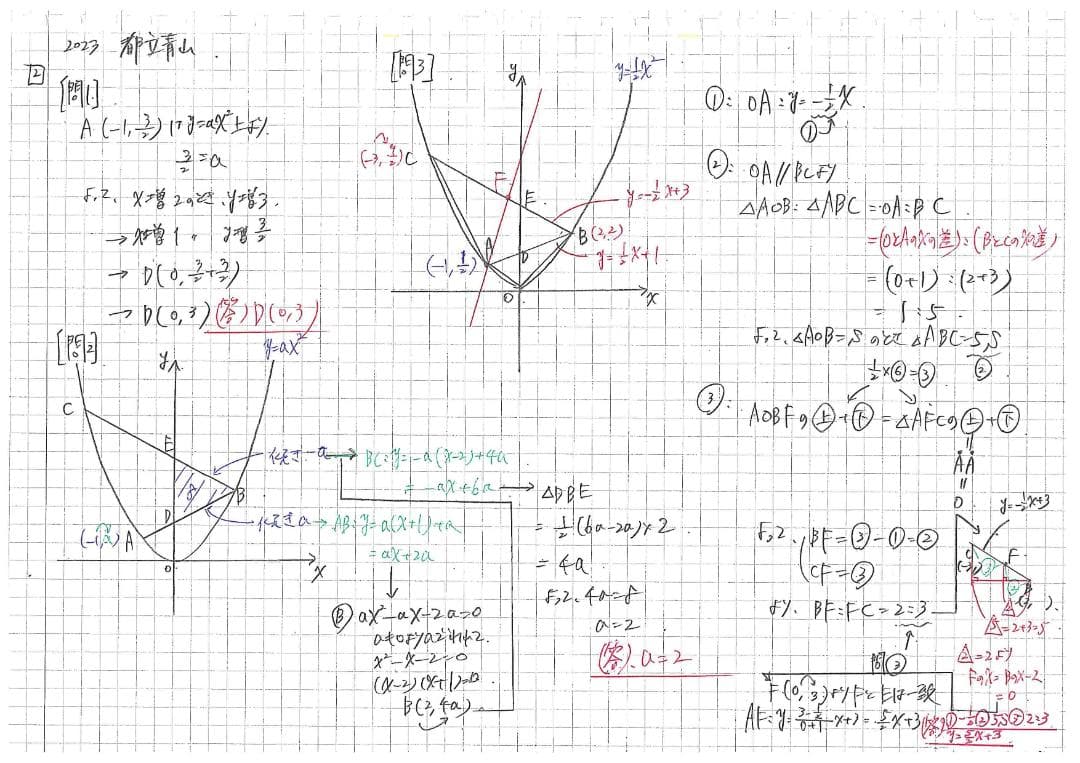 2023 都立青山
2
[問1]
A(-1, 3/2)は y=ax²上より.
3/2=a
よって, x増2のとき, y増3.
→ x増1 〃 y増3/2
→ D(0, 3/2+3/2)
→ D(0,3) (答) D(0,3)
[問2]
y=ax²
y
C
E
8
B
D
A
(-1,a)
O
x
傾き -a → BC: y=-a(x-2)+4a
= -ax+6a
傾き a → AB: y=a(x+1)+a
=ax+2a
B ax²-ax-2a=0
a≠0よりaでわって.
x²-x-2=0
(x-2)(x+1)=0
B(2,4a)
△DBE
= 1/2(6a-2a)×2
= 4a
よって, 4a=8
a=2
(答). a=2
[問3]
y
y=1/2x²
(-3, 9/2)C
F
E
y=-1/2x+3
B(2,2)
A
D
y=1/2x+1
(-1, 1/2)
O
x
①: OA: y=-1/2x
①
②: OA//BCより
△AOB: △ABC =OA:BC
=(OとAのxの差):(BとCのxの差)
= (0+1) : (2+3)
= 1:5
よって, △AOB=Sのとき △ABC=5S
②
1/2×⑥=③
③: AOBFの上+下=△AFCの上+下
よって, BF=③-①=②
CF=③
より. BF:FC=2:3
問③
y=-1/2x+3
C
F
B
5=2+3=5
2=2より
Fのx=Bのx-2
=0
F(0,3)よりFとEは一致
AF: y=(3-1/2)/(0+1)x+3=5/2x+3
(答)①-1/2②5S③2:3
y=5/2x+3